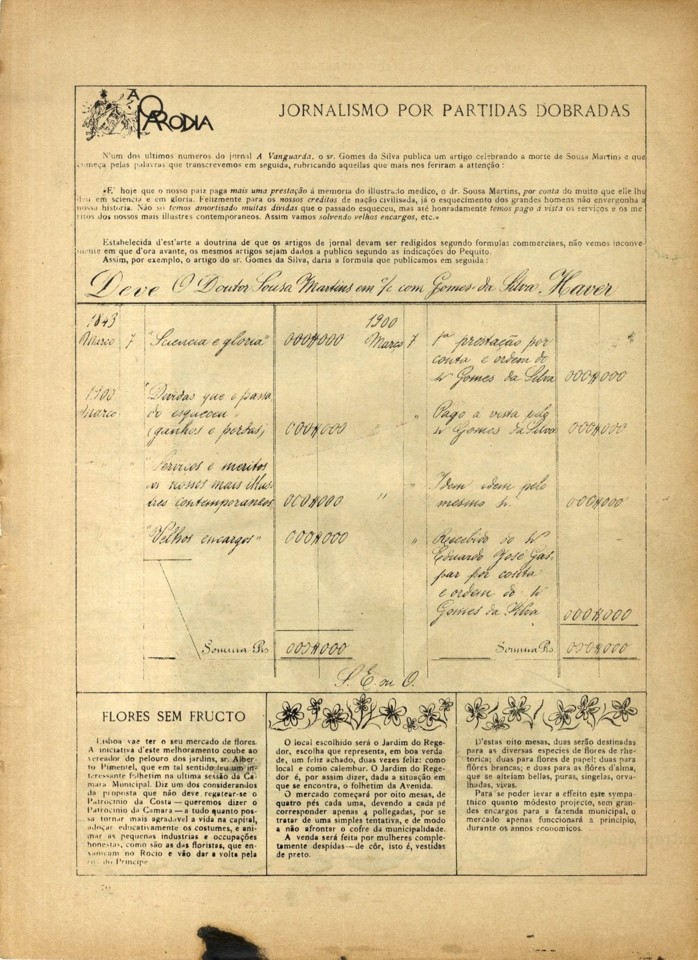 A PARODIA
JORNALISMO POR PARTIDAS DOBRADAS
N'um dos ultimos numeros do jornal A Vanguarda, o sr. Gomes da Silva publica um artigo celebrando a morte de Sousa Martins e que
começa pelas palavras que transcrevemos em seguida, rubricando aquellas que mais nos feriram a attenção:
«E' hoje que o nosso paiz paga mais uma prestação á memoria do illustrado medico, o dr. Sousa Martins, por conta do muito que elle lhe
deu em sciencia e em gloria. Felizmente para os nossos creditos de nação civilisada, já o esquecimento dos grandes homens não envergonha a
nossa historia. Não só temos amortisado muitas dividas que o passado esqueceu, mas até honradamente temos pago á vista os serviços e os me-
ritos dos nossos mais illustres contemporaneos. Assim vamos solvendo velhos encargos, etc.»
Estabelecida d'est'arte a doutrina de que os artigos de jornal devam ser redigidos segundo formulas commerciaes, não vemos inconve-
niente em que d'ora avante, os mesmos artigos sejam dados a publico segundo as indicações do Pequito.
Assim, por exemplo, o artigo do sr. Gomes da Silva, daria a formula que publicamos em seguida:
Deve O Doutor Sousa Martins em c/c com Gomes da Silva Haver
1843 1900
Março 7 "Sciencia e gloria" 000$000 Março 7 1ª prestação por
conta e ordem do
Sr Gomes da Silva 000$000
1900 "Dividas que o passa-
Março do esqueceu" " Pago a vista pelo
(ganhos e perdas) 000$000 Sr Gomes da Silva 000$000
"Serviços e meritos
os nossos mais illus- " Idem idem pelo
tres contemporaneos 000$000 mesmo Sr. 000$000
"Velhos encargos" 000$000 " Recebido do Sr
Eduardo José Gas-
par por conta
e ordem do Sr
Gomes da Silva 000$000
Somma Rs. 000$000 Somma Rs. 000$000
S. E. ou O.
FLORES SEM FRUCTO
Lisboa vae ter o seu mercado de flores.
A iniciativa d'este melhoramento coube ao
vereador do pelouro dos jardins, sr. Alber-
to Pimentel, que em tal sentido leu um in-
teressante folhetim na ultima sessão da Ca-
mara Municipal. Diz um dos considerandos
da proposta que não deve regatear-se o
Patrocinio da Costa—queremos dizer o
Patrocinio da Camara—a tudo quanto pos-
sa tornar mais agradavel a vida na capital,
adoçar educativamente os costumes, e ani-
mar as pequenas industrias e occupações
honestas, como são as das floristas, que en-
xamеiam no Rocio e vão dar a volta pela
do Principe
O local escolhido será o Jardim do Rege-
dor, escolha que representa, em boa verda-
de, um feliz achado, duas vezes feliz: como
local e como calembur. O Jardim do Rege-
dor é, por assim dizer, dada a situação em
que se encontra, o folhetim da Avenida.
O mercado começará por oito mesas, de
quatro pés cada uma, devendo a cada pé
corresponder apenas 4 pollegadas, por se
tratar de uma simples tentativa, e de modo
a não affrontar o cofre da municipalidade.
A venda será feita por mulheres comple-
tamente despidas—de côr, isto é, vestidas
de preto.
D'estas oito mesas, duas serão destinadas
para as diversas especies de flores de rhe-
torica; duas para flores de papel; duas para
flôres brancas; e duas para as flôres d'alma,
que se alteiam bellas, puras, singelas, orva-
lhadas, vivas.
Para se poder levar a effeito este sympa-
thico quanto módesto projecto, sem gran-
des encargos para a fazenda municipal, o
mercado apenas funccionará a principio,
durante os annos economicos.